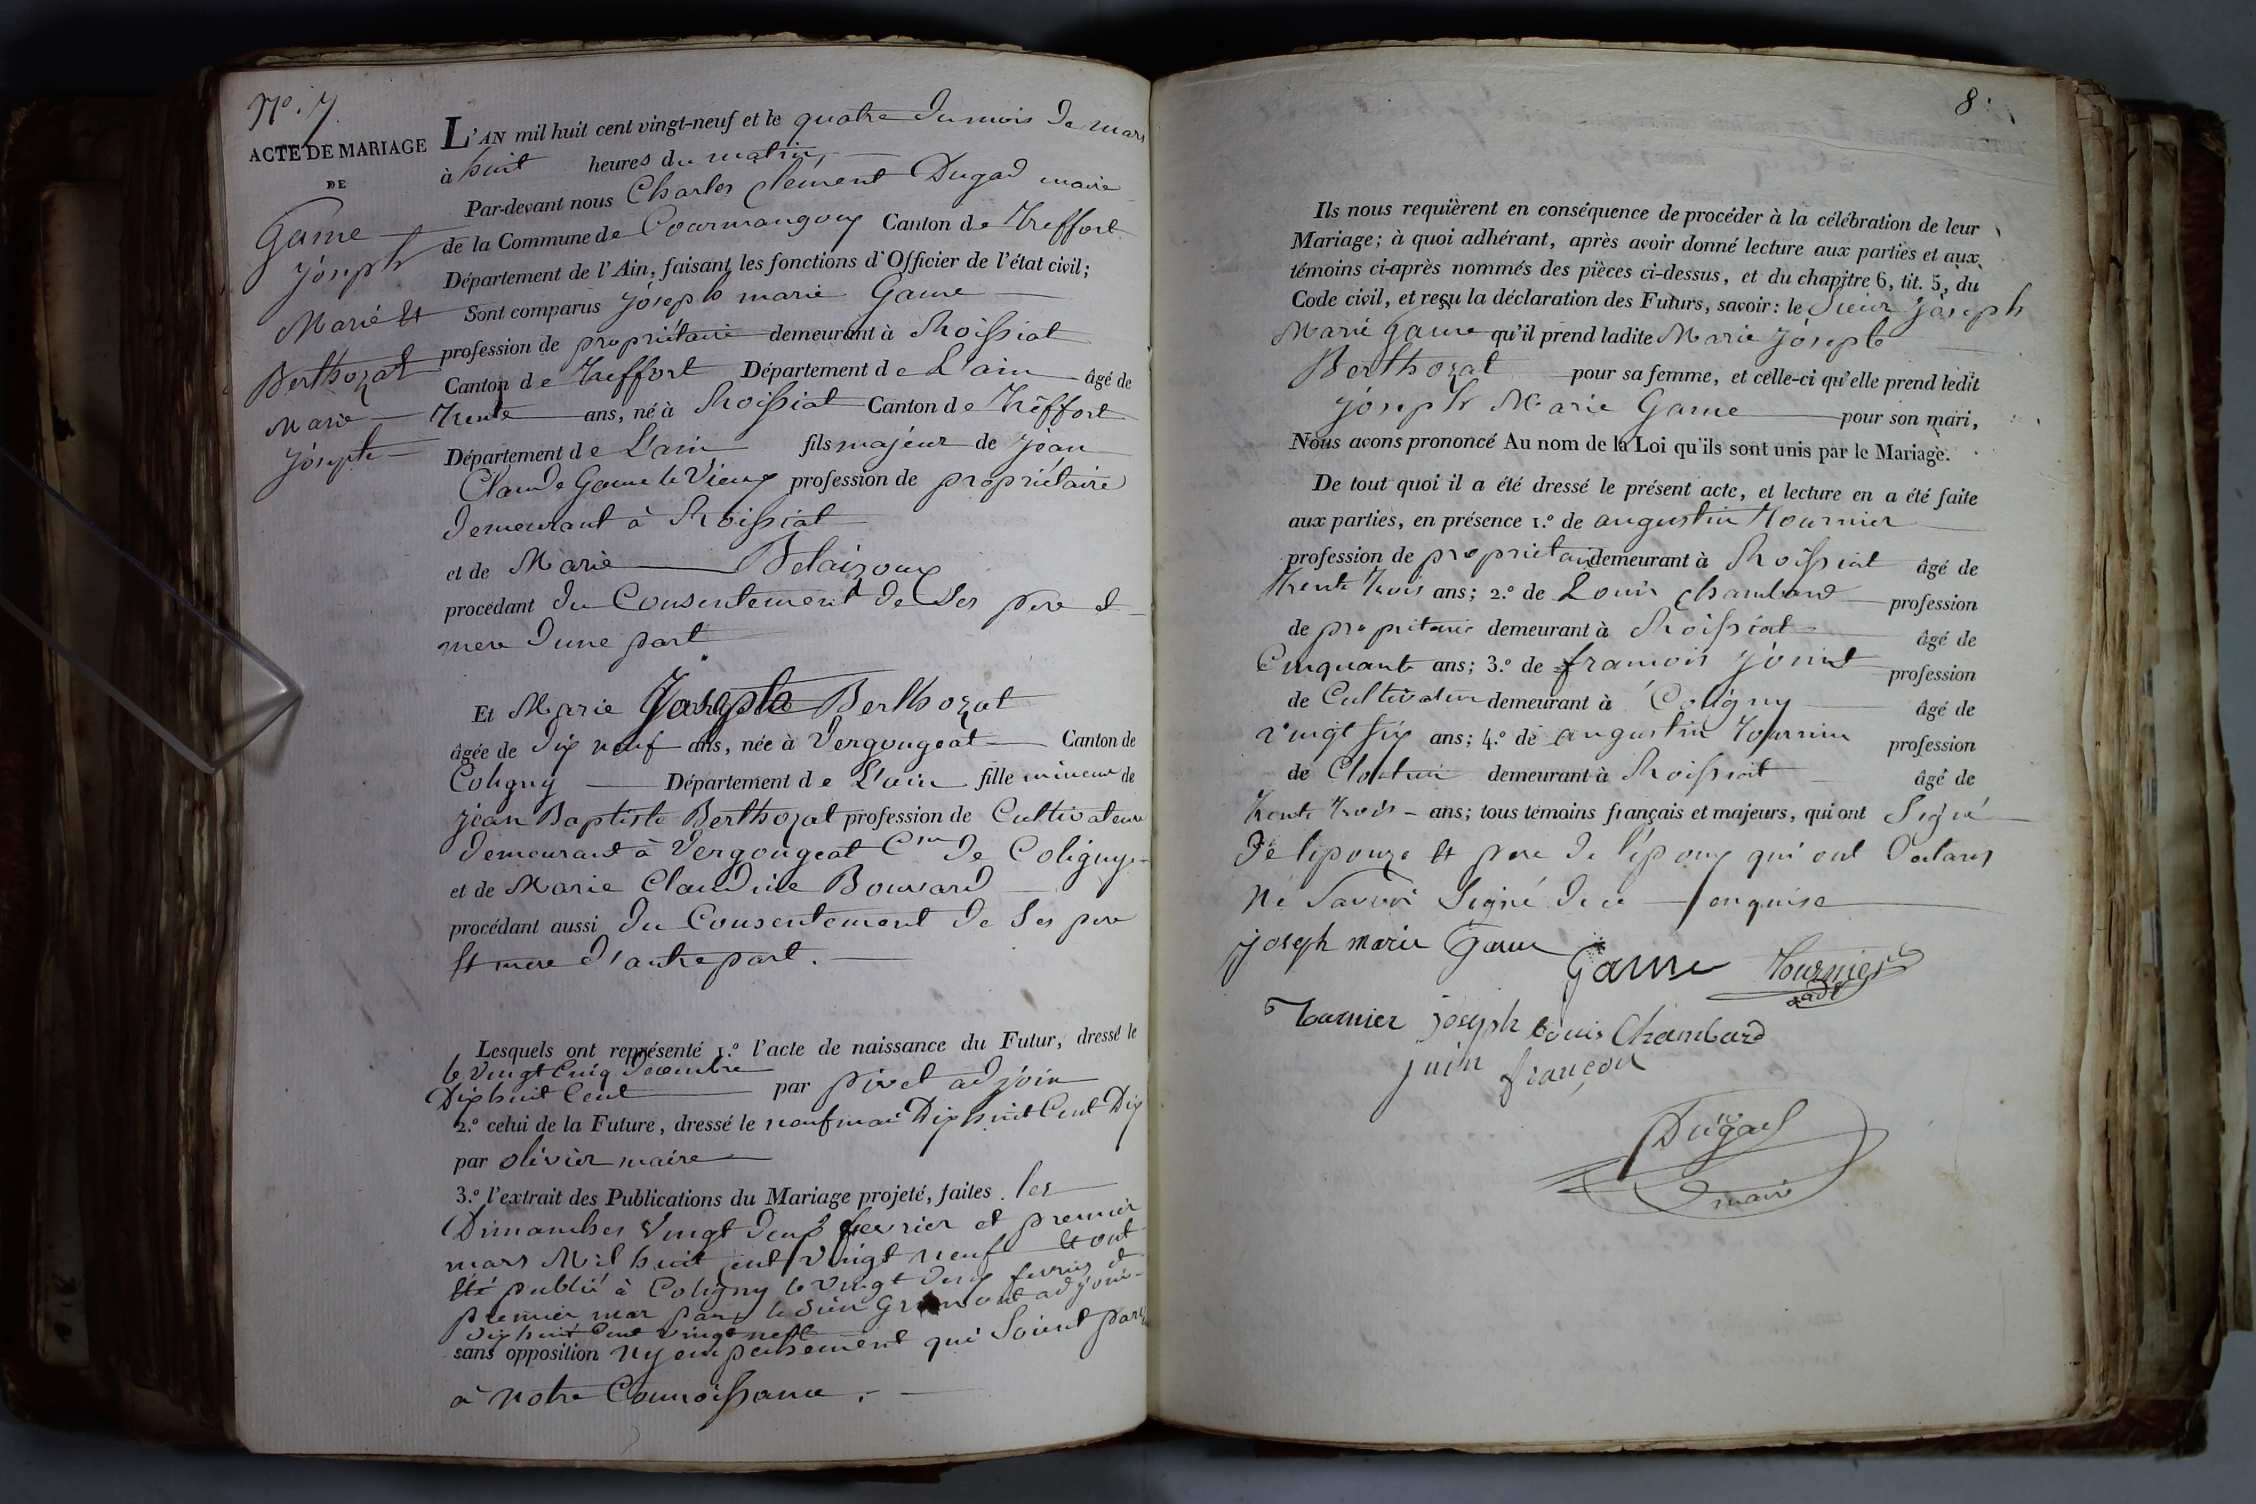 N.o 7.
ACTE DE MARIAGE
DE
Game
joseph
Marie Et
Berthozat
Marie
josephte
L'AN mil huit cent vingt-neuf et le quatre du mois de mars
à huit heures du matin,
Par-devant nous Charles Clement Dugad maire
de la Commune de Courmangoux Canton de Treffort
Département de l'Ain, faisant les fonctions d'Officier de l'état civil;
Sont comparus joseph marie Game
profession de proprietaire demeurant à Roissiat
Canton de Treffort Département de L'ain âgé de
trente ans, né à Roissiat Canton de Treffort
Département de L'ain fils majeur de jean
Claude Game le Vieux profession de propriétaire
demeurant à Roissiat
et de Marie
procédant du Consentement de Ses pere et
mere d'une part
Et Marie Josephte Berthozat
âgée de dix neuf ans, née à Vergongeat Canton de
Coligny Département de L'ain fille mineur de
jean Baptiste Berthozat profession de Cultivateur
demeurant à Vergongeat C.on de Coligny
et de Marie Claudine Bouvard
procédant aussi du Consentement de Ses pere
Et mere d'autre part.
Lesquels ont représenté 1.o l'acte de naissance du Futur, dressé le
le vingt Cinq Decembre
Dix huit Cent par pivet adjoin
2.o celui de la Future, dressé le neuf mai Dix huit Cent Dix
par olivier maire
3.o l'extrait des Publications du Mariage projeté, faites les
Dimanches Vingt deux fevrier et premier
mars Mil huit cent vingt neuf Et ont
Eté publié à Coligny le vingt deux fevrier et
premier mar par le Sieur adjoin
dix huit Cent vingt neuf
sans opposition ny empechement qui Soient
à Notre Connoissance.
8.
Ils nous requièrent en conséquence de procéder à la célébration de leur
Mariage; à quoi adhérant, après avoir donné lecture aux parties et aux
témoins ci-après nommés des pièces ci-dessus, et du chapitre 6, tit. 5, du
Code civil, et reçu la déclaration des Futurs, savoir: le Sieur joseph
Marie Game qu'il prend ladite Marie josephte
Berthozat pour sa femme, et celle-ci qu'elle prend ledit
joseph Marie Game pour son mari,
Nous avons prononcé Au nom de la Loi qu'ils sont unis par le Mariage.
De tout quoi il a été dressé le présent acte, et lecture en a été faite
aux parties, en présence 1.o de augustin Tournier
profession de proprietair demeurant à Roissiat âgé de
trente trois ans; 2.o de Louis Chambard profession
de propritaire demeurant à Roissiat âgé de
Cinquante ans; 3.o de francois profession
de Cultivateur demeurant à Coligny âgé de
vingt six ans; 4.o de augustin Tournier profession
de demeurant à Roissiat âgé de
trente trois ans; tous témoins français et majeurs, qui ont Signé
Et pere de l'epoux qui ont
Né Savoir Signé de ce enquise
joseph marie Game
Game Tournier
Tournier joseph Louis Chambard
juin françois
Dugad
maire